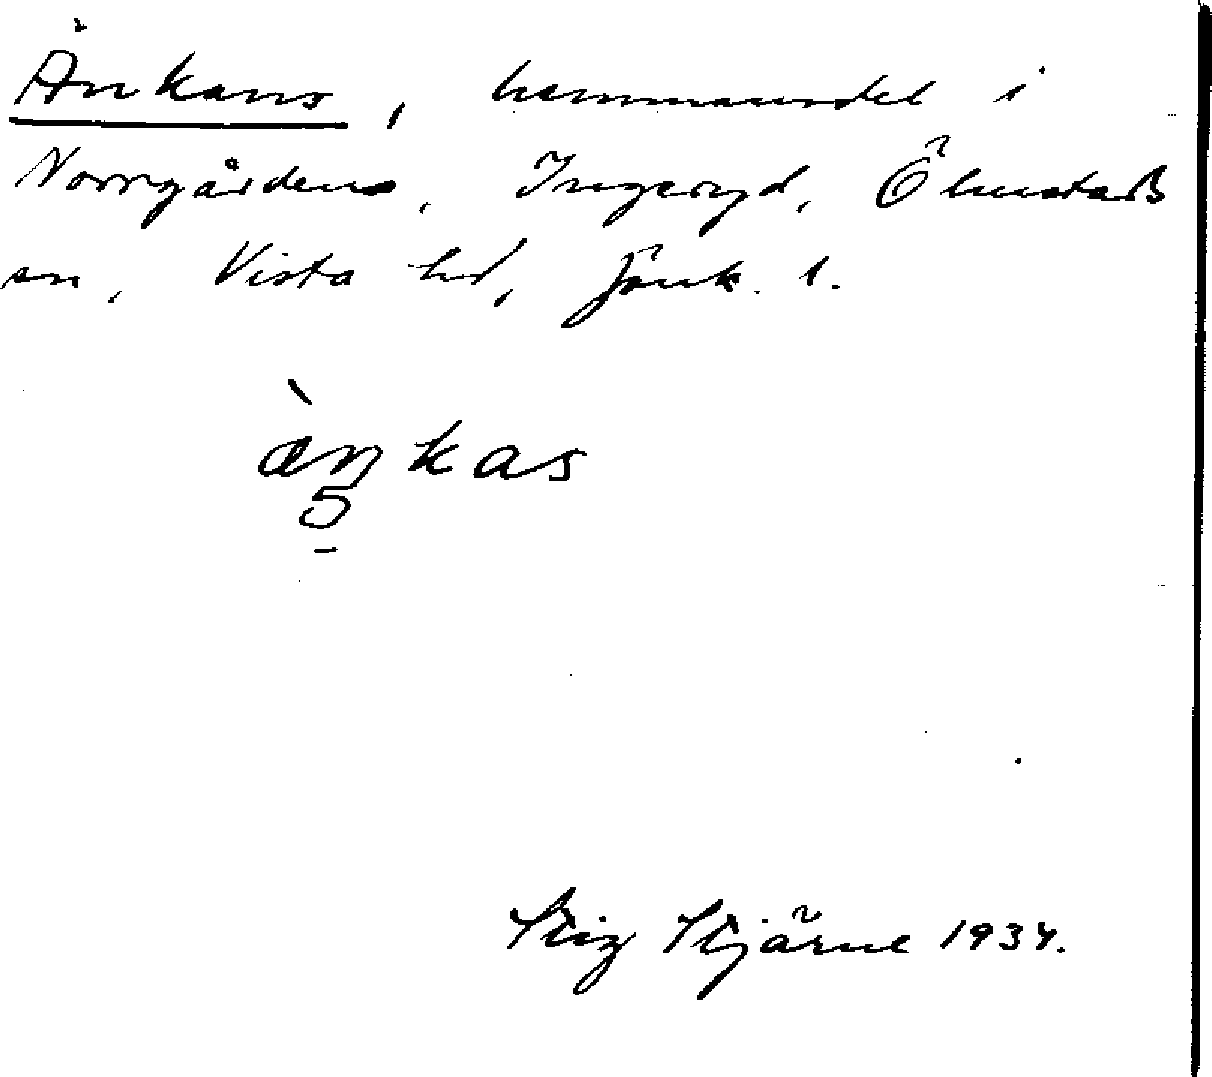 Änkans, hemmansdel i
Norrgården, Ingeryd, Ölmstads
sn, Vista hd, Jönk. l.
àŋkas
5
Stig Stjärne 1934.